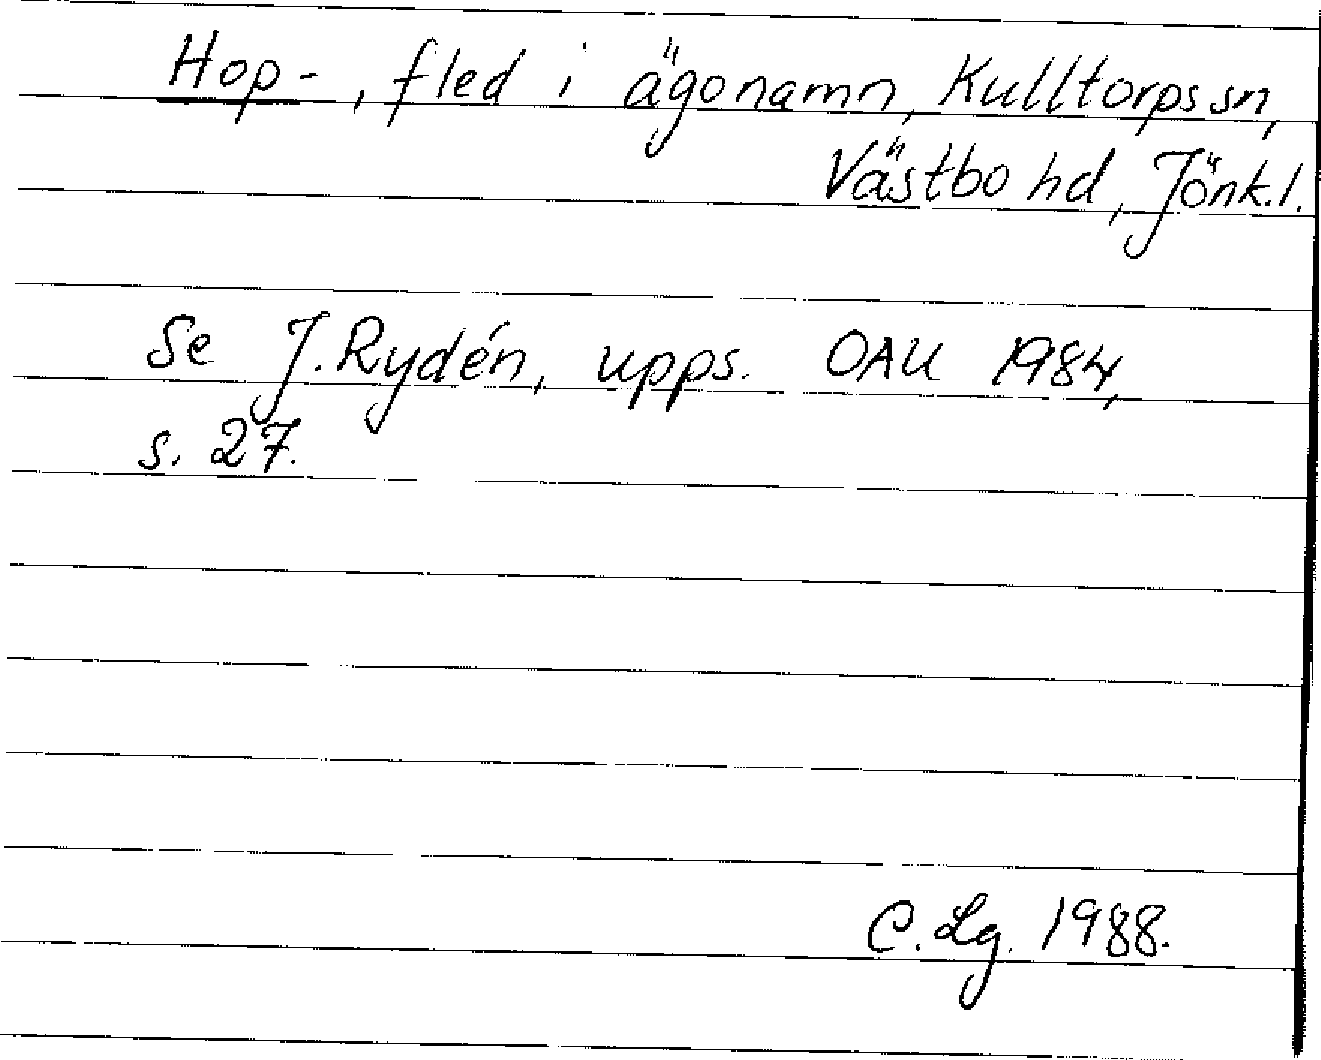 Hop-, fled i ägonamn, Kulltorps sn,
Västbo hd, Jönk.l.
Se J. Rydén, upps. OAU 1984,
s. 27.
C. Lg. 1988.